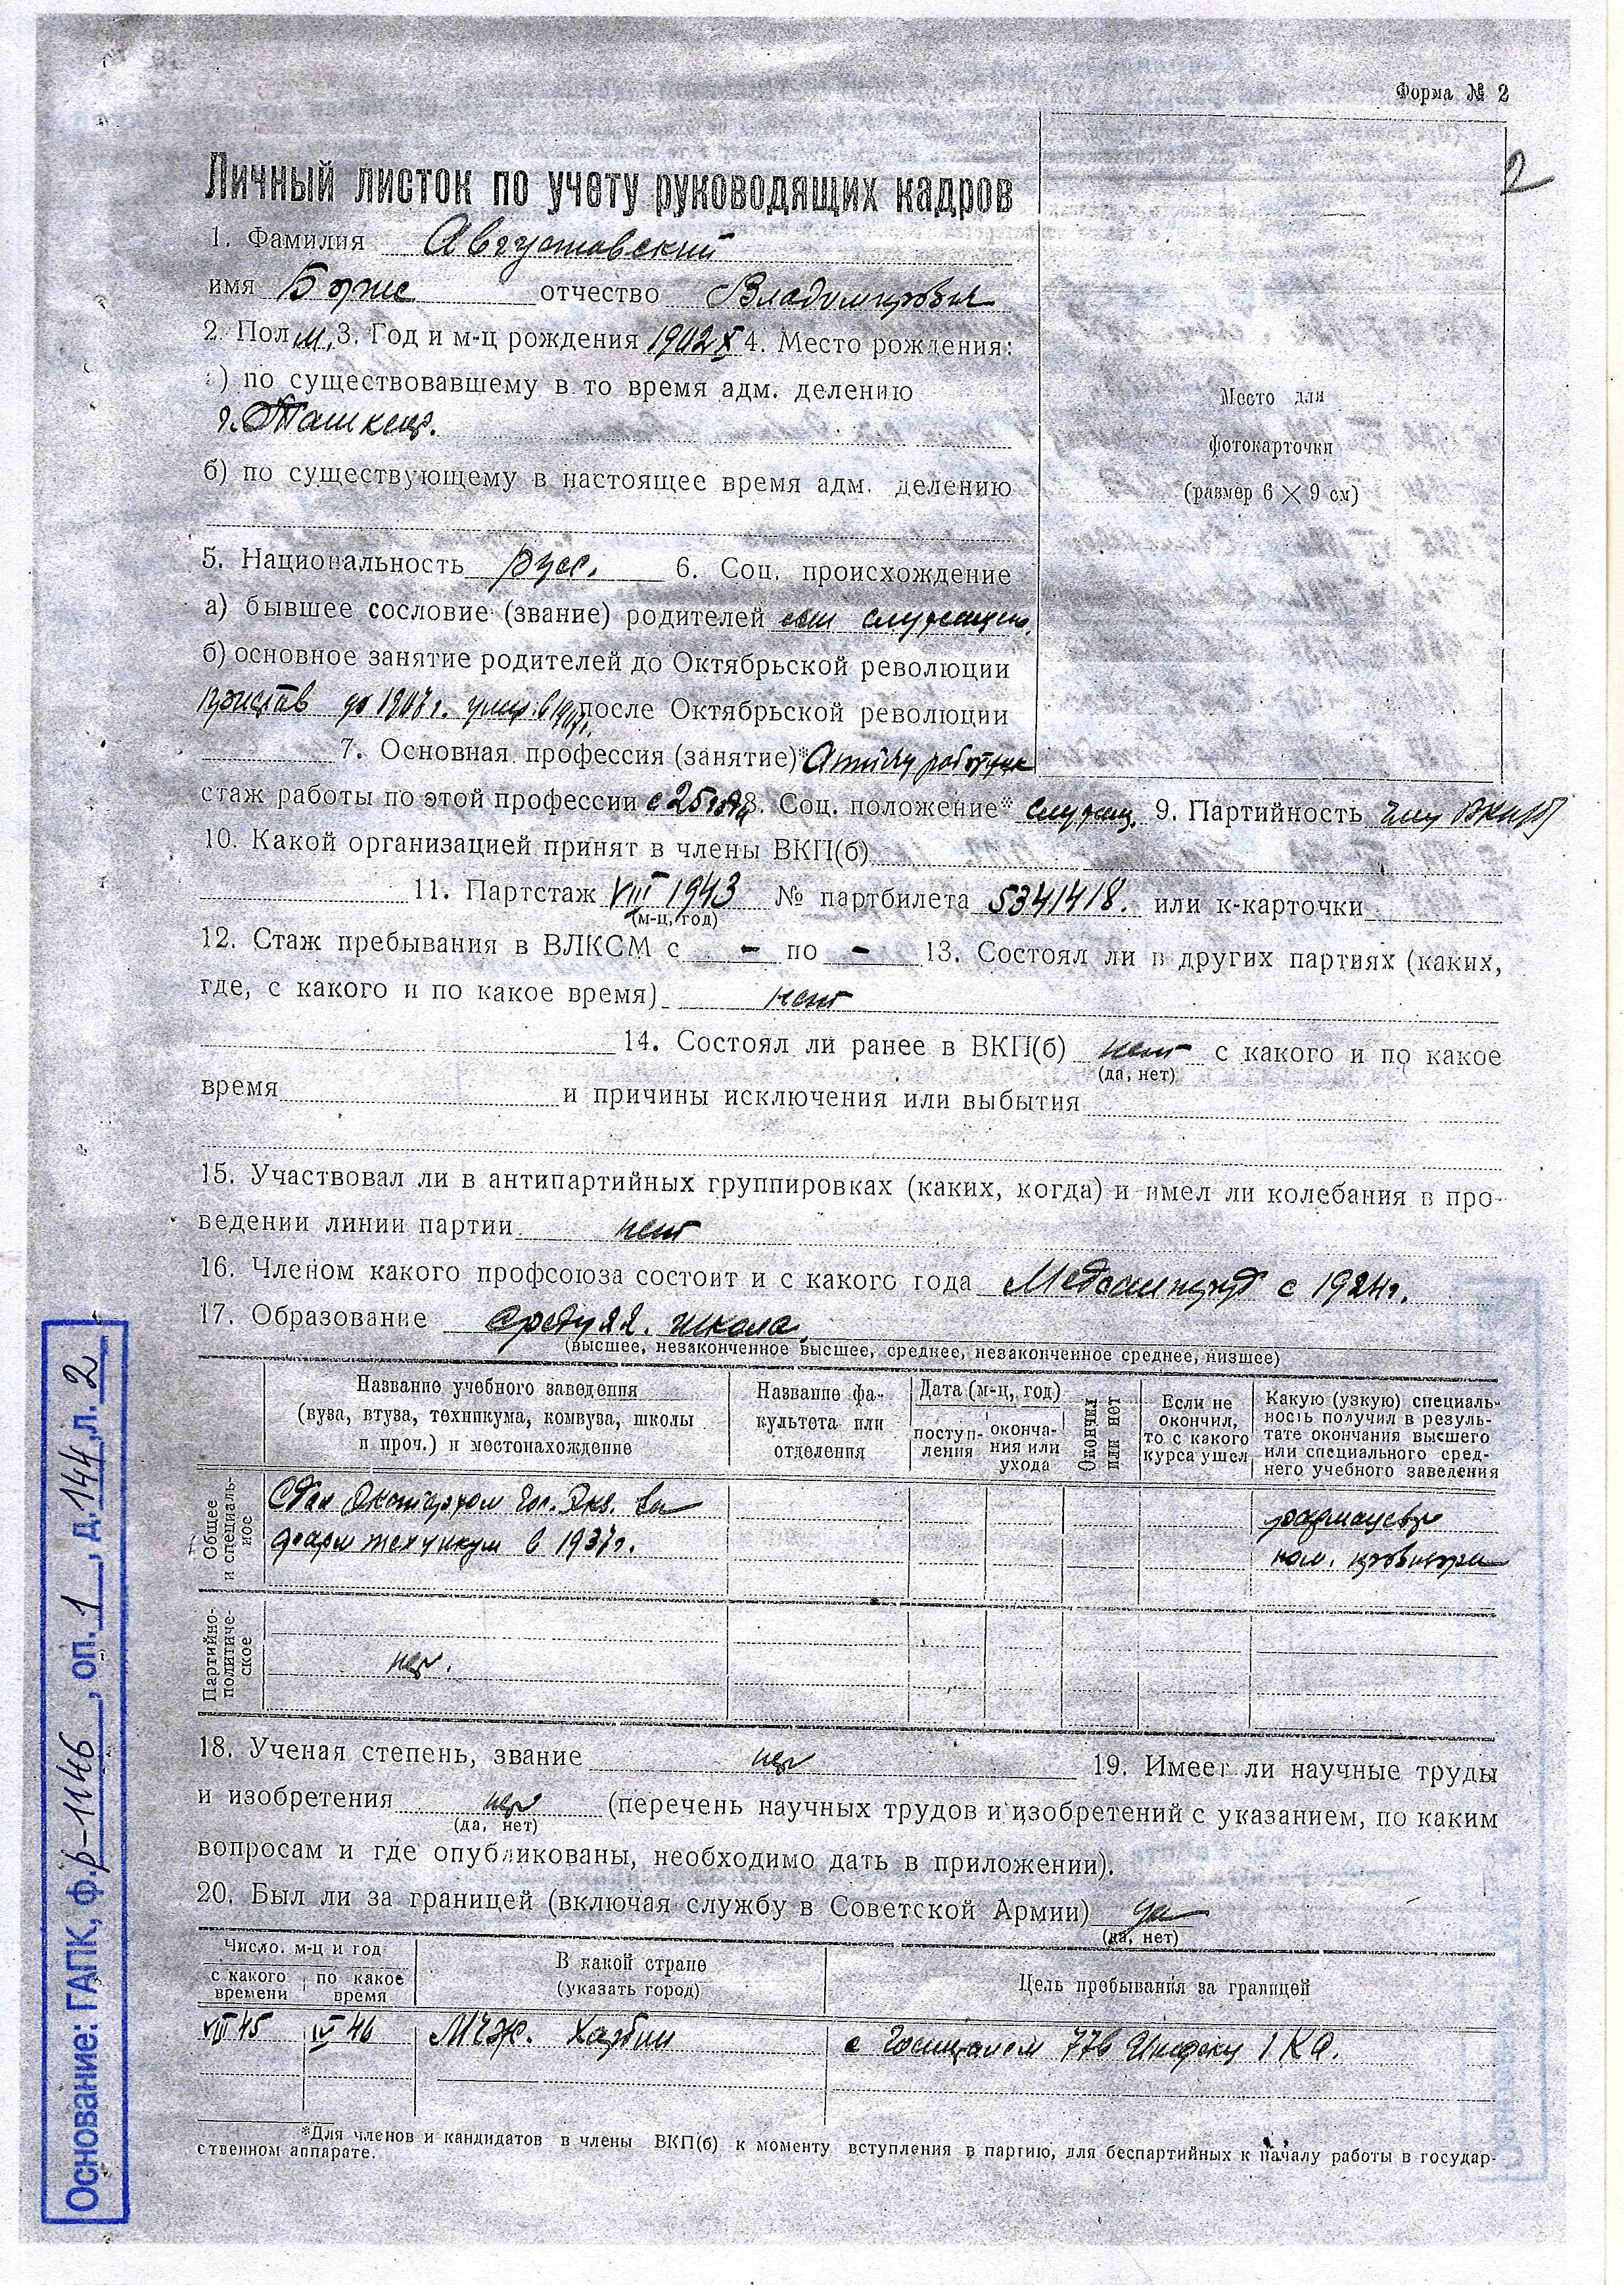 Форма № 2
2
Личный листок по учету руководящих кадров
1. Фамилия Августовский
имя Борис отчество Владимирович
2. Пол м. 3. Год и м-ц рождения 1902 X 4. Место рождения:
а) по существовавшему в то время адм. делению
г. Ташкент.
б) по существующему в настоящее время адм. делению
Место для
фотокарточки
(размер 6 × 9 см)
5. Национальность рус. 6. Соц. происхождение
а) бывшее сословие (звание) родителей сын служащ.
б) основное занятие родителей до Октябрьской революции
пристав до 1907 г. умер в 1907г. после Октябрьской революции
7. Основная профессия (занятие)*
стаж работы по этой профессии с 25 года 8. Соц. положение* служащ. 9. Партийность член ВКП(б)
10. Какой организацией принят в члены ВКП(б)
11. Партстаж VIII 1943 № партбилета 5341418. или к-карточки
(м-ц, год)
12. Стаж пребывания в ВЛКСМ с - по - 13. Состоял ли в других партиях (каких,
где, с какого и по какое время) нет
14. Состоял ли ранее в ВКП(б) нет с какого и по какое
(да, нет)
время и причины исключения или выбытия
15. Участвовал ли в антипартийных группировках (каких, когда) и имел ли колебания в про-
ведении линии партии нет
16. Членом какого профсоюза состоит и с какого года Медсантруд с 1924г.
17. Образование средняя школа.
(высшее, незаконченное высшее, среднее, незаконченное среднее, низшее)
Название учебного заведения
(вуза, втуза, техникума, комвуза, школы
и проч.) и местонахождение
Название фа-
культета или
отделения
Дата (м-ц, год)
поступ-
ления
оконча-
ния или
ухода
Окончил
или нет
Если не
окончил,
то с какого
курса ушел
Какую (узкую) специаль-
ность получил в резуль-
тате окончания высшего
или специального сред-
него учебного заведения
Общее
и специаль-
ное
Сдал экстерном Гос. Экз. за
фарм техникум в 1937г.
фармацевт
пом. провизора
Партийно-
политиче-
ское
нет.
18. Ученая степень, звание нет 19. Имеет ли научные труды
и изобретения нет (перечень научных трудов и изобретений с указанием, по каким
(да, нет)
вопросам и где опубликованы, необходимо дать в приложении).
20. Был ли за границей (включая службу в Советской Армии) да
(да, нет)
Число, м-ц и год
с какого
времени
по какое
время
В какой стране
(указать город)
Цель пребывания за границей
VIII 45 IV 46 Харбин с Госпиталем 776 1 КА.
*Для членов и кандидатов в члены ВКП(б) к моменту вступления в партию, для беспартийных к началу работы в государ-
ственном аппарате.
Основание: ГАПК, ф. р-1146, оп. 1, д. 144, л. 2